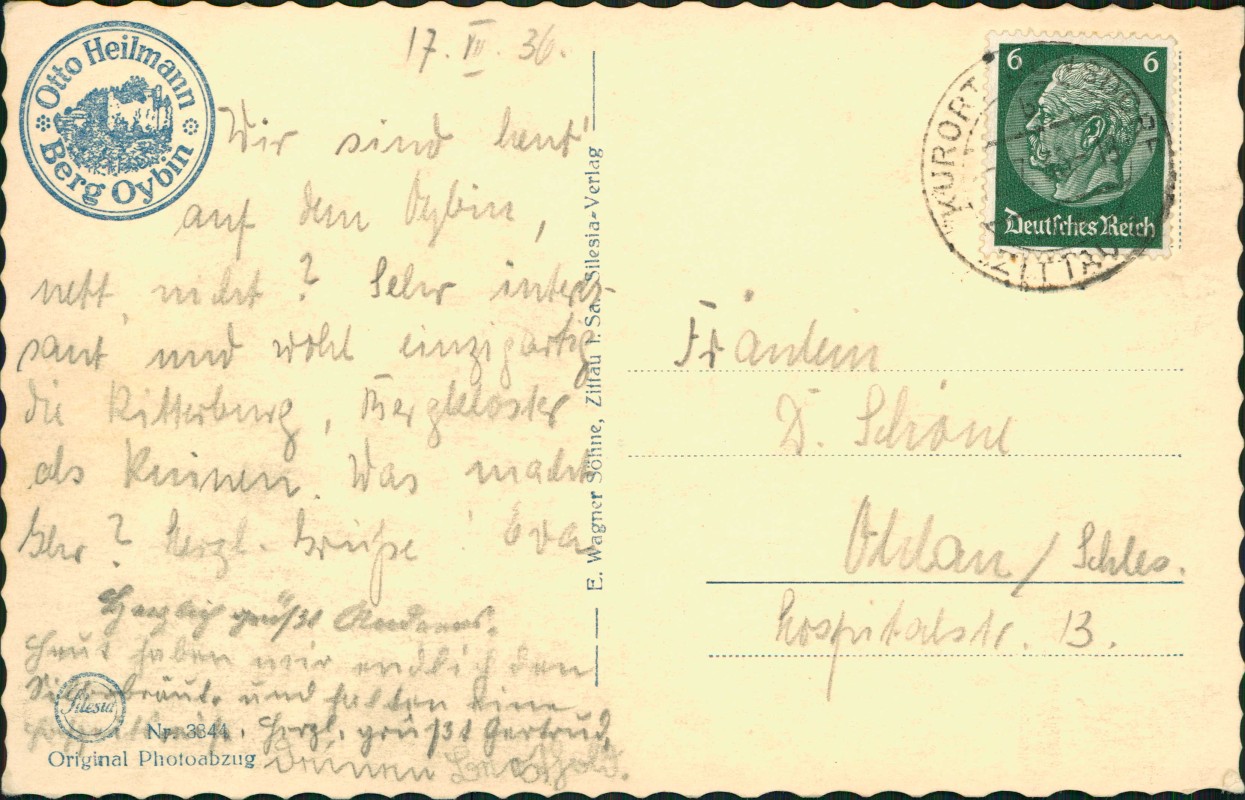 Otto Heilmann
Berg Oybin
17. VII. 36.
Wir sind heut'
auf dem Oybin,
nett, nicht? Sehr interes-
sant und wohl einzigartig
die Ritterburg, Bergkloster
als Ruinen. Was macht
Ihr? Herzl. Grüße! Eva
Herzlich grüßt Andreas.
Heut haben wir endlich den
und halten eine
Herzl. grüßt Gertrud,
Silesia
Nr. 3344
Original Photoabzug
E. Wagner Söhne, Zittau i. Sa. Silesia-Verlag
6 6
Deutsches Reich
KURORT
ZITTAU
Fräulein
D. Schöne
Ohlau / Schles.
Hospitalstr. 13.